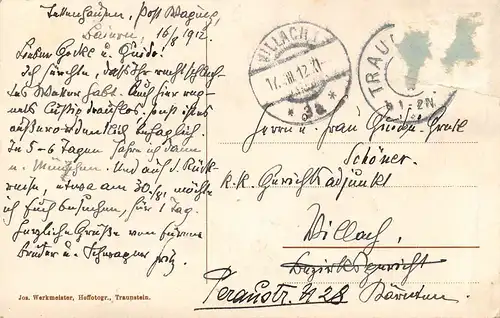 Tettenhausen, Post Waging,
Baiern, 16/8 1912.
Lieber Gockl u Guido!
Ich fürchte, dass Ihr recht schlech-
tes Wetter habt. Auch hier reg-
nets lustig drauflos, sonst ist es
außerordentlich behaglich.
In 5-6 Tagen fahre ich dann
n. München. Und auf d. Rück-
reise, etwa am 30/8, möchte
ich Euch besuchen, für 1 Tag.
Herzliche Grüße von Eurem
Bruder u. Schwager Fritz
Jos. Werkmeister, Hoffotogr., Traunstein.
VILLACH 1
17.VIII.12.XI-
* 3a *
TRAU
1-2N.
Herrn u. Frau Guido
Schöner
k.k. Gerichtsadjunkt
Villach,
Bezirksgericht
Peraustr. 28 Kärnten